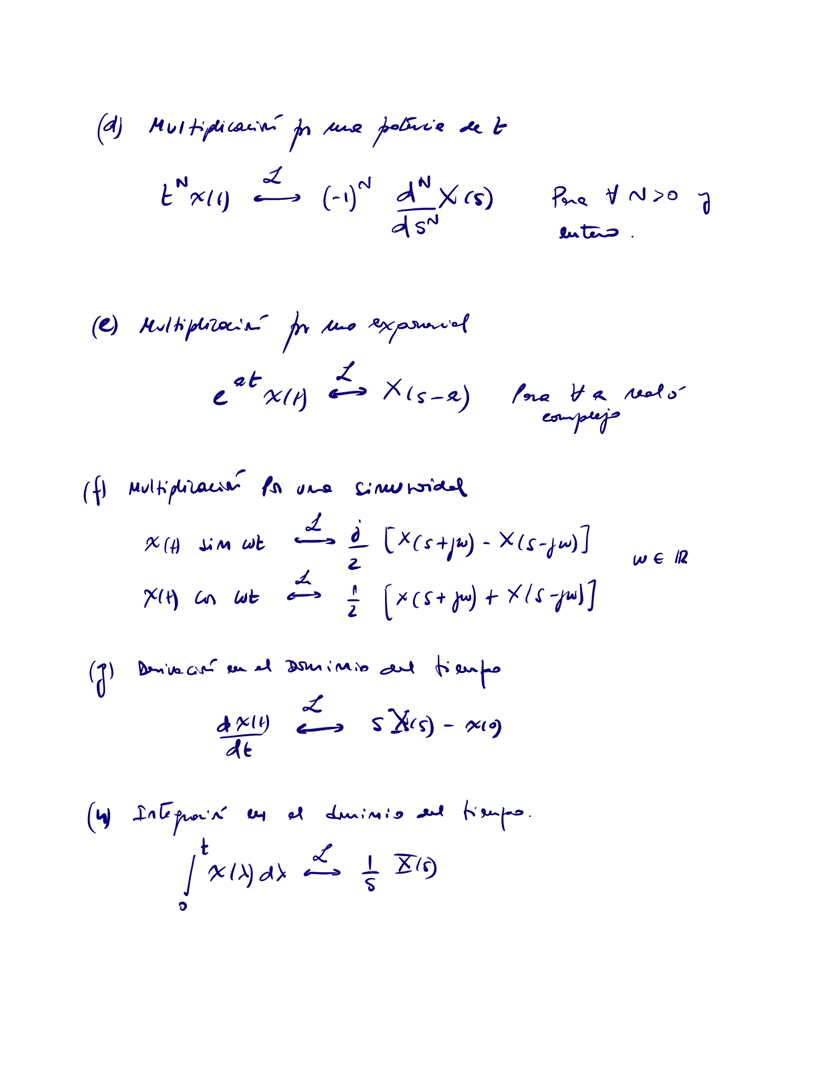 (d) Multiplicación por una potencia de t
t^N x(t) ⟷ℒ (-1)^N d^N/ds^N X(s) Para ∀ N>0 y
entero.
(e) Multiplicación por una exponencial
e^{at} x(t) ⟷ℒ X(s-a) Para ∀ a real ó
complejo
(f) Multiplicación por una sinusoidal
x(t) sin ωt ⟷ℒ j/2 [X(s+jω) - X(s-jω)] ω ∈ ℝ
x(t) cos ωt ⟷ℒ 1/2 [X(s+jω) + X(s-jω)]
(g) Derivación en el Dominio del tiempo
dx(t)/dt ⟷ℒ s X(s) - x(0)
(h) Integración en el dominio del tiempo.
∫_0^t x(λ) dλ ⟷ℒ 1/s X(s)